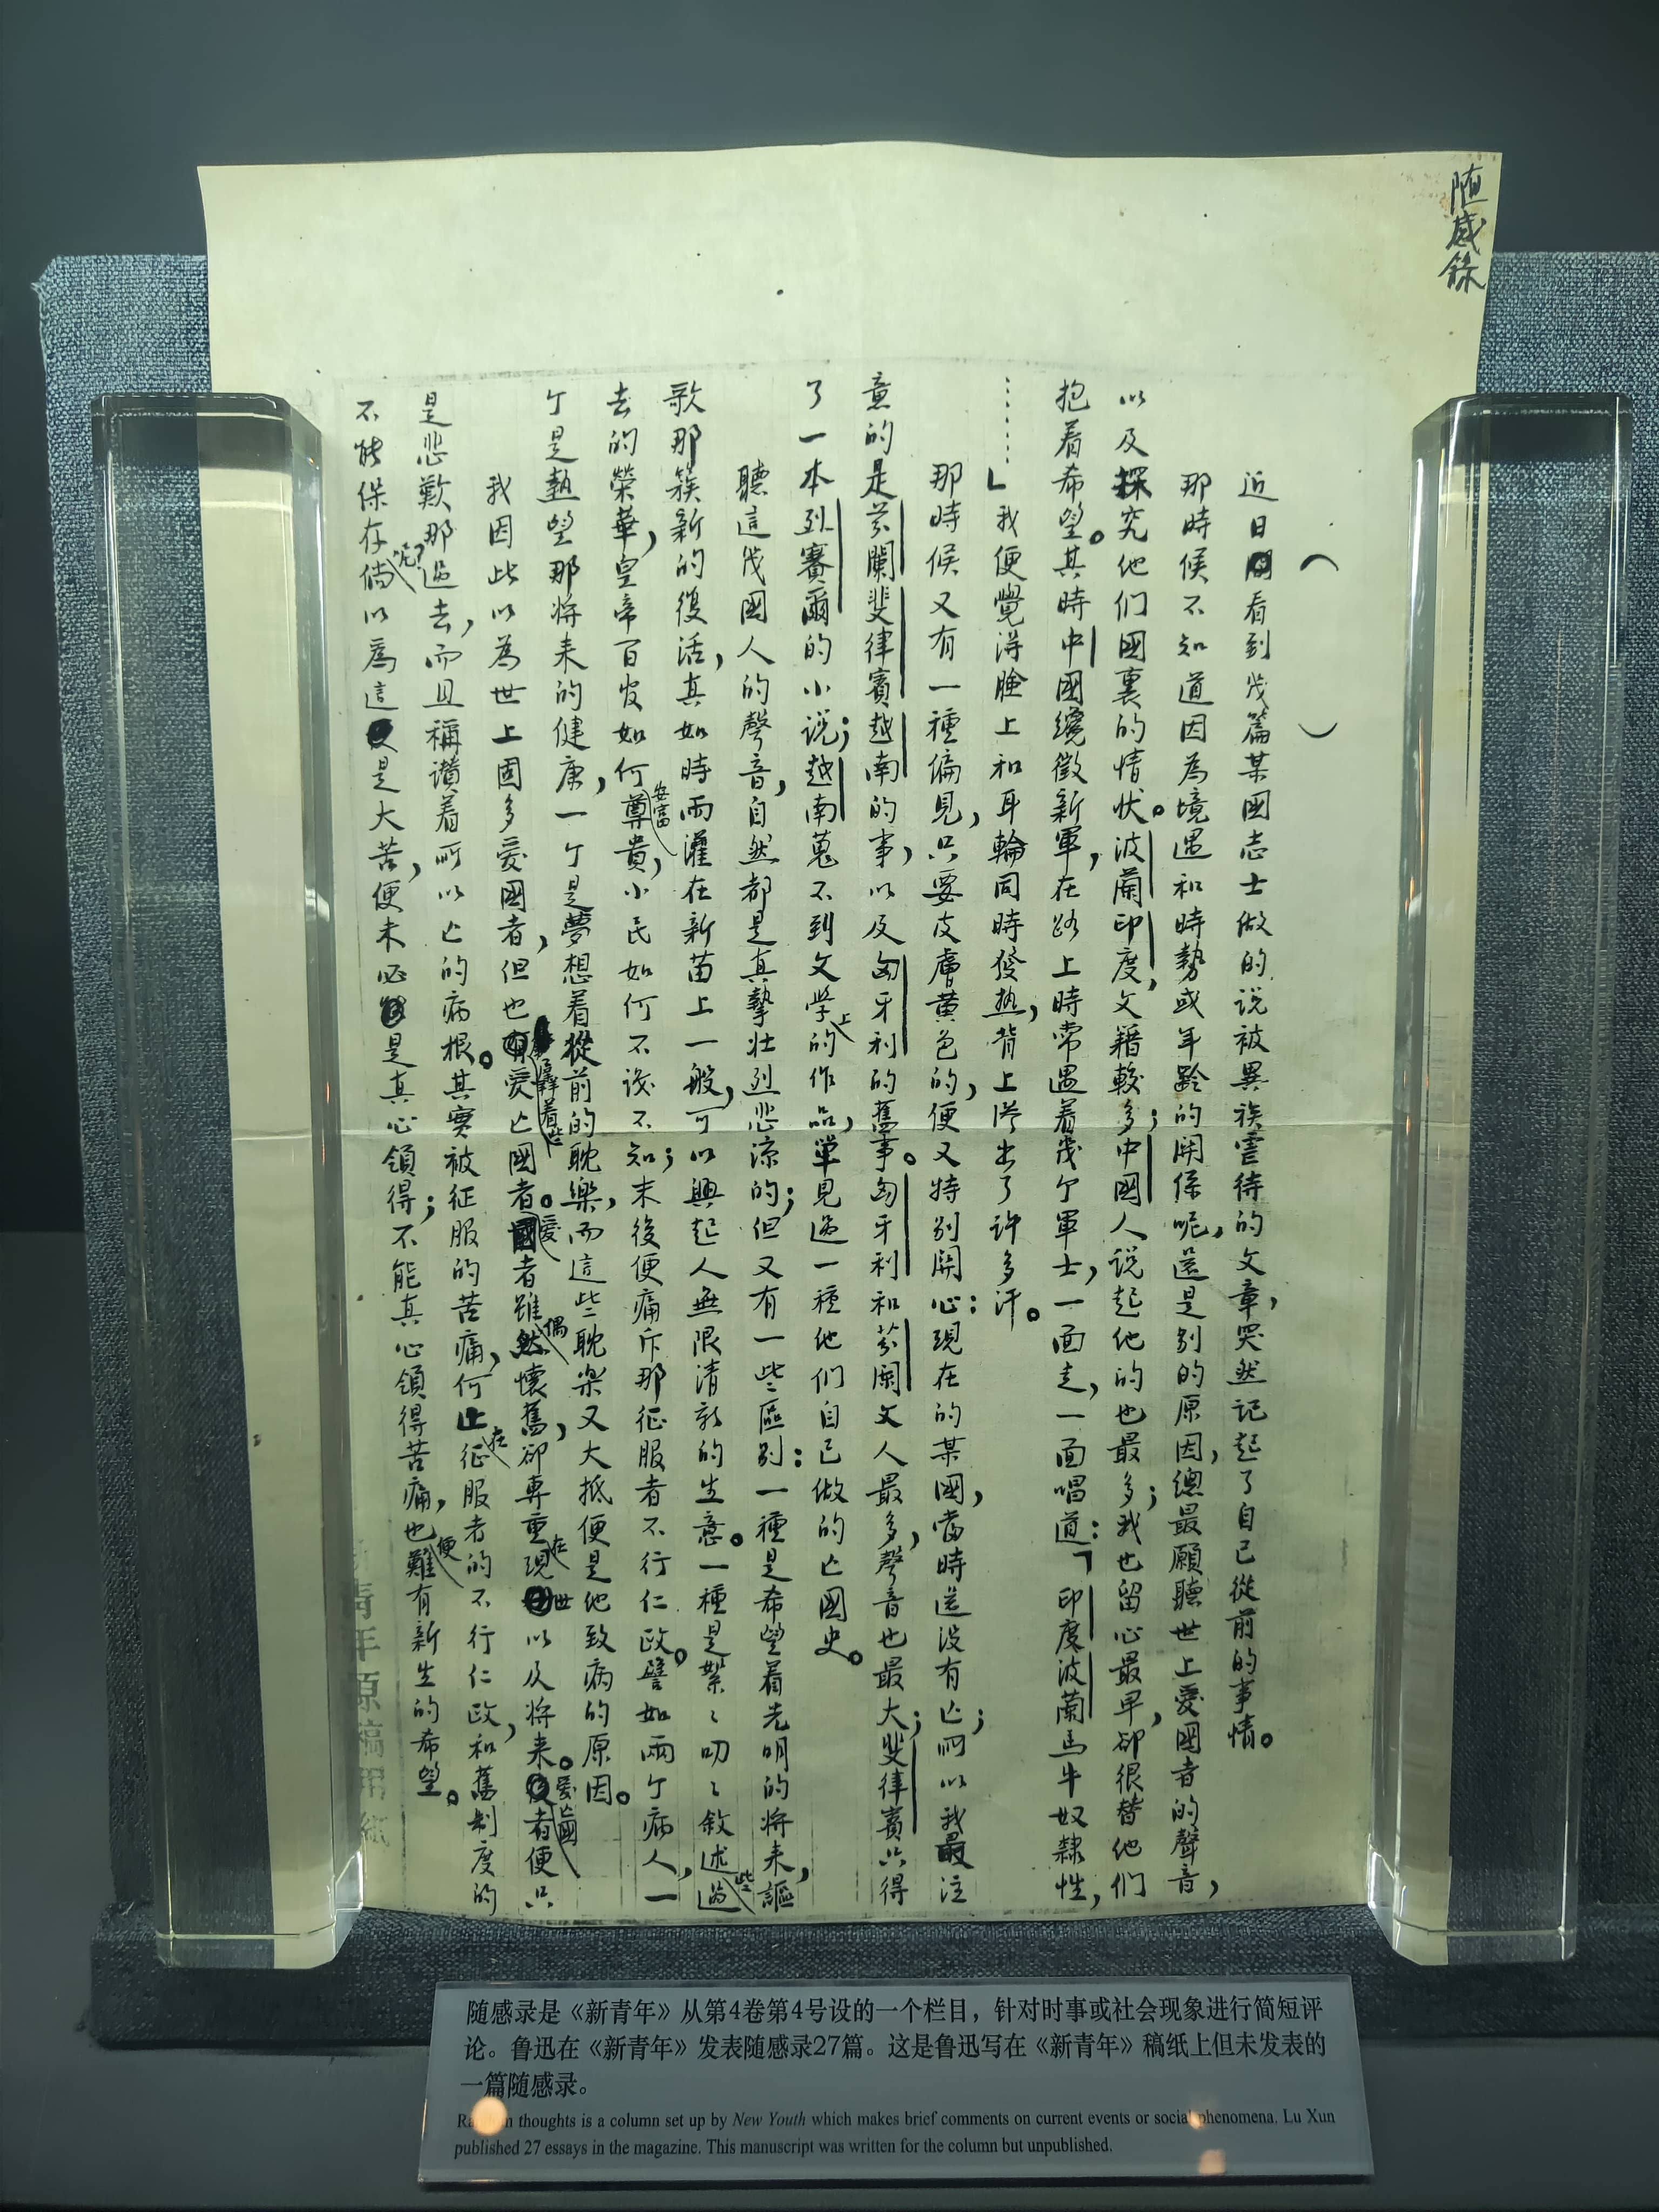 随感錄
（　　）
近日看到幾篇某國志士做的说被異族虐待的文章，突然记起了自己從前的事情。
那時候不知道因為境遇和時勢或年齡的関係呢，還是别的原因，總最願聽世上愛國者的聲音，
以及探究他们國裏的情状。波蘭印度，文籍較多；中國人说起他的也最多；我也留心最早，卻很替他们
抱着希望。其時中國纔徵新軍，在路上時常遇着幾个軍士，一面走，一面唱道：「印度波蘭馬牛奴隸性，
……」我便覺得臉上和耳輪同時發热，背上渗出了许多汗。
那時候又有一種偏見，只要皮膚黄色的，便又特别関心：現在的某國，當時還没有亡；所以我最注
意的是芬闌斐律賓越南的事，以及匈牙利的舊事。匈牙利和芬闌文人最多，聲音也最大；斐律賓只得
了一本列賽爾的小说；越南蒐不到文学上的作品，單見過一種他们自己做的亡國史。
聽這幾國人的聲音，自然都是真摯壮烈悲涼的；但又有一些區别：一種是希望着光明的将来，謳
歌那簇新的復活，真如時雨灌在新苗上一般，可以興起人無限清新的生意。一種是絮〻叨〻叙述些過
去的榮華，皇帝百官如何安富尊貴，小民如何不識不知；末後便痛斥那征服者不行仁政。譬如兩个病人，一
个是熱望那将来的健康，一个是夢想着從前的耽樂，而這些耽樂又大抵便是他致病的原因。
我因此以為世上固多愛國者，但也羼着些愛亡國者。愛國者雖偶懷舊，卻專重在現世以及将来。愛亡國者便只
是悲歎那過去，而且稱讚着所以亡的病根。其實被征服的苦痛，何止在征服者的不行仁政，和舊制度的
不能保存呢？倘以為這是大苦，便未必是真心領得；不能真心領得苦痛，也便難有新生的希望。
青年原稿用紙
随感录是《新青年》从第4卷第4号设的一个栏目，针对时事或社会现象进行简短评
论。鲁迅在《新青年》发表随感录27篇。这是鲁迅写在《新青年》稿纸上但未发表的
一篇随感录。
Random thoughts is a column set up by New Youth which makes brief comments on current events or social phenomena. Lu Xun
published 27 essays in the magazine. This manuscript was written for the column but unpublished.